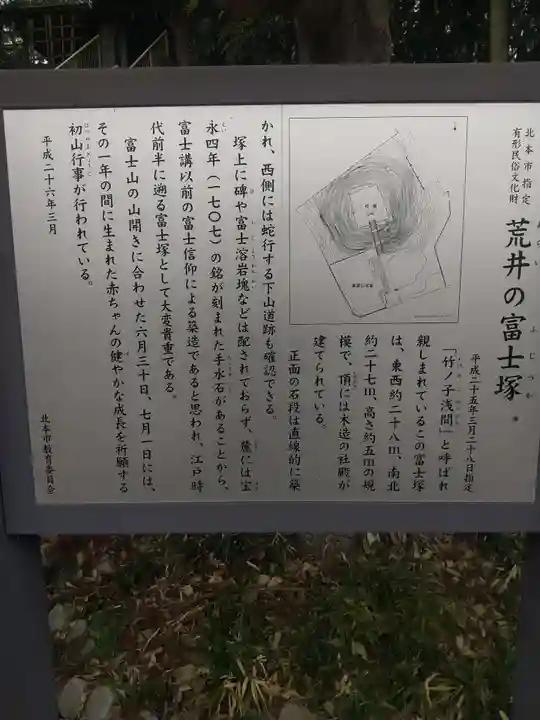 北本市指定
有形民俗文化財
荒井の富士塚
平成二十五年三月二十八日指定
「竹ノ子浅間」と呼ばれ
親しまれているこの富士塚
は、東西約二十八m、南北
約二十七m、高さ約五mの規
模で、頂には木造の社殿が
建てられている。
正面の石段は直線的に築
かれ、西側には蛇行する下山道跡も確認できる。
塚上に碑や富士溶岩塊などは配されておらず、麓には宝
永四年(一七〇七)の銘が刻まれた手水石があることから、
富士講以前の富士信仰による築造であると思われ、江戸時
代前半に遡る富士塚として大変貴重である。
富士山の山開きに合わせた六月三十日、七月一日には、
その一年の間に生まれた赤ちゃんの健やかな成長を祈願する
初山行事が行われている。
平成二十六年三月
北本市教育委員会